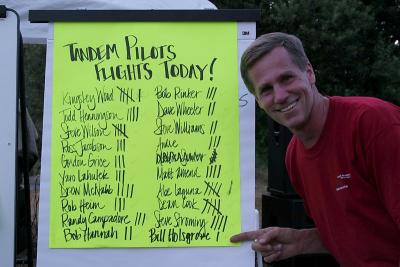 TANDEM PILOTS
FLIGHTS TODAY!
Kingsley Wood
Todd Henningson
Steve Wilson
Ross Jacobson
Gordon Grice
Yaro
Drew McNabb
Rob Heim
Randy Campadore
Bob Hannah
Bob Rinker
Dave Wheeler
Steve Williams
Andre
Matt Amend
Abe Laguna
Sean Cook
Steve Stroming
Bill Holsgrove